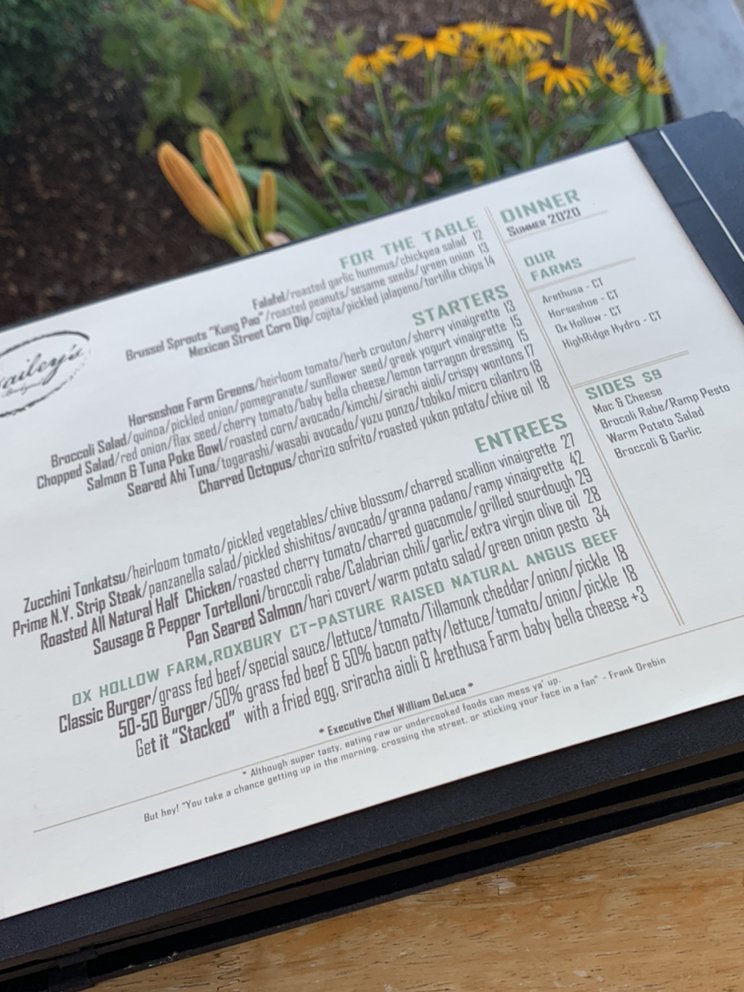 ailey's
FOR THE TABLE
Falafel/roasted garlic hummus/chickpea salad 12
Brussel Sprouts "Kung Pao"/roasted peanuts/sesame seeds/green onion 13
Mexican Street Corn Dip/cojita/pickled jalapeno/tortilla chips 14
STARTERS
Horseshoe Farm Greens/heirloom tomato/herb crouton/sherry vinaigrette 13
Broccoli Salad/quinoa/pickled onion/pomegranate/sunflower seed/greek yogurt vinaigrette 15
Chopped Salad/red onion/flax seed/cherry tomato/baby bella cheese/lemon tarragon dressing 15
Salmon & Tuna Poke Bowl/roasted corn/avocado/kimchi/sirachi aioli/crispy wontons 17
Seared Ahi Tuna/togarashi/wasabi avocado/yuzu ponzo/tobiko/micro cilantro 18
Charred Octopus/chorizo sofrito/roasted yukon potato/chive oil 18
ENTREES
Zucchini Tonkatsu/heirloom tomato/pickled vegetables/chive blossom/charred scallion vinaigrette 27
Prime N.Y. Strip Steak/panzanella salad/pickled shishitos/avocado/granna padano/ramp vinaigrette 42
Roasted All Natural Half Chicken/roasted cherry tomato/charred guacomole/grilled sourdough 29
Sausage & Pepper Tortelloni/broccoli rabe/Calabrian chili/garlic/extra virgin olive oil 28
Pan Seared Salmon/hari covert/warm potato salad/green onion pesto 34
OX HOLLOW FARM,ROXBURY CT-PASTURE RAISED NATURAL ANGUS BEEF
Classic Burger/grass fed beef/special sauce/lettuce/tomato/Tillamonk cheddar/onion/pickle 18
50-50 Burger/50% grass fed beef & 50% bacon patty/lettuce/tomato/onion/pickle 18
Get it "Stacked" with a fried egg, sriracha aioli & Arethusa Farm baby bella cheese +3
* Executive Chef William DeLuca *
* Although super tasty, eating raw or undercooked foods can mess ya' up.
But hey! "You take a chance getting up in the morning, crossing the street, or sticking your face in a fan" - Frank Drebin
DINNER
SUMMER 2020
OUR
FARMS
Arethusa - CT
Horseshoe - CT
Ox Hollow - CT
HighRidge Hydro - CT
SIDES $9
Mac & Cheese
Brocoli Rabe/Ramp Pesto
Warm Potato Salad
Broccoli & Garlic